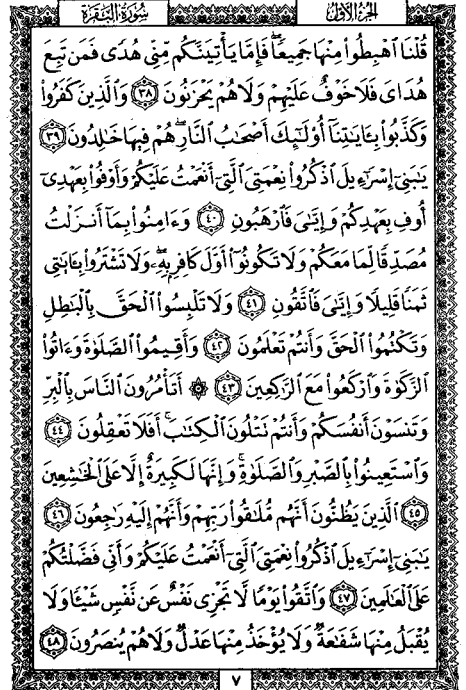 سُورَةُ البَقَرَةِ الجُزءُ الأوّل
قُلْنَا ٱهْبِطُوا۟ مِنْهَا جَمِيعًا ۖ فَإِمَّا يَأْتِيَنَّكُم مِّنِّى هُدًى فَمَن تَبِعَ
هُدَاىَ فَلَا خَوْفٌ عَلَيْهِمْ وَلَا هُمْ يَحْزَنُونَ ٣٨ وَٱلَّذِينَ كَفَرُوا۟
وَكَذَّبُوا۟ بِـَٔايَـٰتِنَآ أُو۟لَـٰٓئِكَ أَصْحَـٰبُ ٱلنَّارِ ۖ هُمْ فِيهَا خَـٰلِدُونَ ٣٩
يَـٰبَنِىٓ إِسْرَٰٓءِيلَ ٱذْكُرُوا۟ نِعْمَتِىَ ٱلَّتِىٓ أَنْعَمْتُ عَلَيْكُمْ وَأَوْفُوا۟ بِعَهْدِىٓ
أُوفِ بِعَهْدِكُمْ وَإِيَّـٰىَ فَٱرْهَبُونِ ٤٠ وَءَامِنُوا۟ بِمَآ أَنزَلْتُ
مُصَدِّقًا لِّمَا مَعَكُمْ وَلَا تَكُونُوٓا۟ أَوَّلَ كَافِرٍۭ بِهِۦ ۖ وَلَا تَشْتَرُوا۟ بِـَٔايَـٰتِى
ثَمَنًا قَلِيلًا وَإِيَّـٰىَ فَٱتَّقُونِ ٤١ وَلَا تَلْبِسُوا۟ ٱلْحَقَّ بِٱلْبَـٰطِلِ
وَتَكْتُمُوا۟ ٱلْحَقَّ وَأَنتُمْ تَعْلَمُونَ ٤٢ وَأَقِيمُوا۟ ٱلصَّلَوٰةَ وَءَاتُوا۟
ٱلزَّكَوٰةَ وَٱرْكَعُوا۟ مَعَ ٱلرَّٰكِعِينَ ٤٣ ۞ أَتَأْمُرُونَ ٱلنَّاسَ بِٱلْبِرِّ
وَتَنسَوْنَ أَنفُسَكُمْ وَأَنتُمْ تَتْلُونَ ٱلْكِتَـٰبَ ۚ أَفَلَا تَعْقِلُونَ ٤٤
وَٱسْتَعِينُوا۟ بِٱلصَّبْرِ وَٱلصَّلَوٰةِ ۚ وَإِنَّهَا لَكَبِيرَةٌ إِلَّا عَلَى ٱلْخَـٰشِعِينَ
٤٥ ٱلَّذِينَ يَظُنُّونَ أَنَّهُم مُّلَـٰقُوا۟ رَبِّهِمْ وَأَنَّهُمْ إِلَيْهِ رَٰجِعُونَ ٤٦
يَـٰبَنِىٓ إِسْرَٰٓءِيلَ ٱذْكُرُوا۟ نِعْمَتِىَ ٱلَّتِىٓ أَنْعَمْتُ عَلَيْكُمْ وَأَنِّى فَضَّلْتُكُمْ
عَلَى ٱلْعَـٰلَمِينَ ٤٧ وَٱتَّقُوا۟ يَوْمًا لَّا تَجْزِى نَفْسٌ عَن نَّفْسٍ شَيْـًٔا وَلَا
يُقْبَلُ مِنْهَا شَفَـٰعَةٌ وَلَا يُؤْخَذُ مِنْهَا عَدْلٌ وَلَا هُمْ يُنصَرُونَ ٤٨
٧